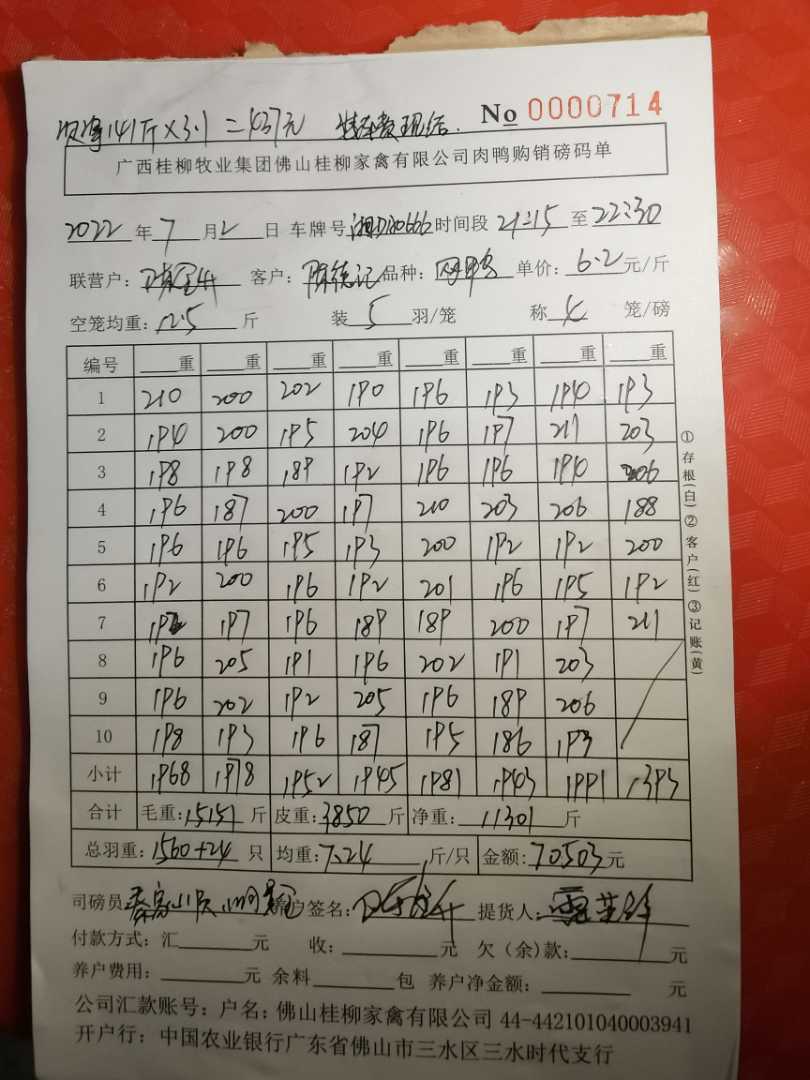 次净141斤×3.1=437元 No 0000714
广西桂柳牧业集团佛山桂柳家禽有限公司肉鸭购销磅码单
2022年7月2日 车牌号 时间段21:15至22:30
联营户: 客户:陈德记 品种: 单价:6.2元/斤
空笼均重:12.5斤 装5羽/笼 称4笼/磅
编号 重 重 重 重 重 重 重 重
1 210 200 202 190 196 193 190 193
2 190 200 195 204 196 197 211 203
3 198 198 189 192 196 196 190 206
4 196 187 200 197 210 203 206 188
5 196 196 195 193 200 192 192 200
6 192 200 196 192 201 196 195 192
7 192 197 196 189 189 200 197 211
8 196 205 191 196 202 191 203
9 196 202 192 205 196 189 206
10 198 193 196 187 195 186 193
小计 1968 1978 1952 1945 1981 1943 1991 1393
合计 毛重:15151斤 皮重:3850斤 净重:11301斤
总羽重:1560+24只 均重:7.24斤/只 金额:70503元
司磅员 户签名: 提货人:
付款方式:汇 元 收: 元 欠(余)款: 元
养户费用: 元 余料 包 养户净金额: 元
公司汇款账号:户名:佛山桂柳家禽有限公司 44-442101040003941
开户行:中国农业银行广东省佛山市三水区三水时代支行
①存根(白)②客户(红)③记账(黄)